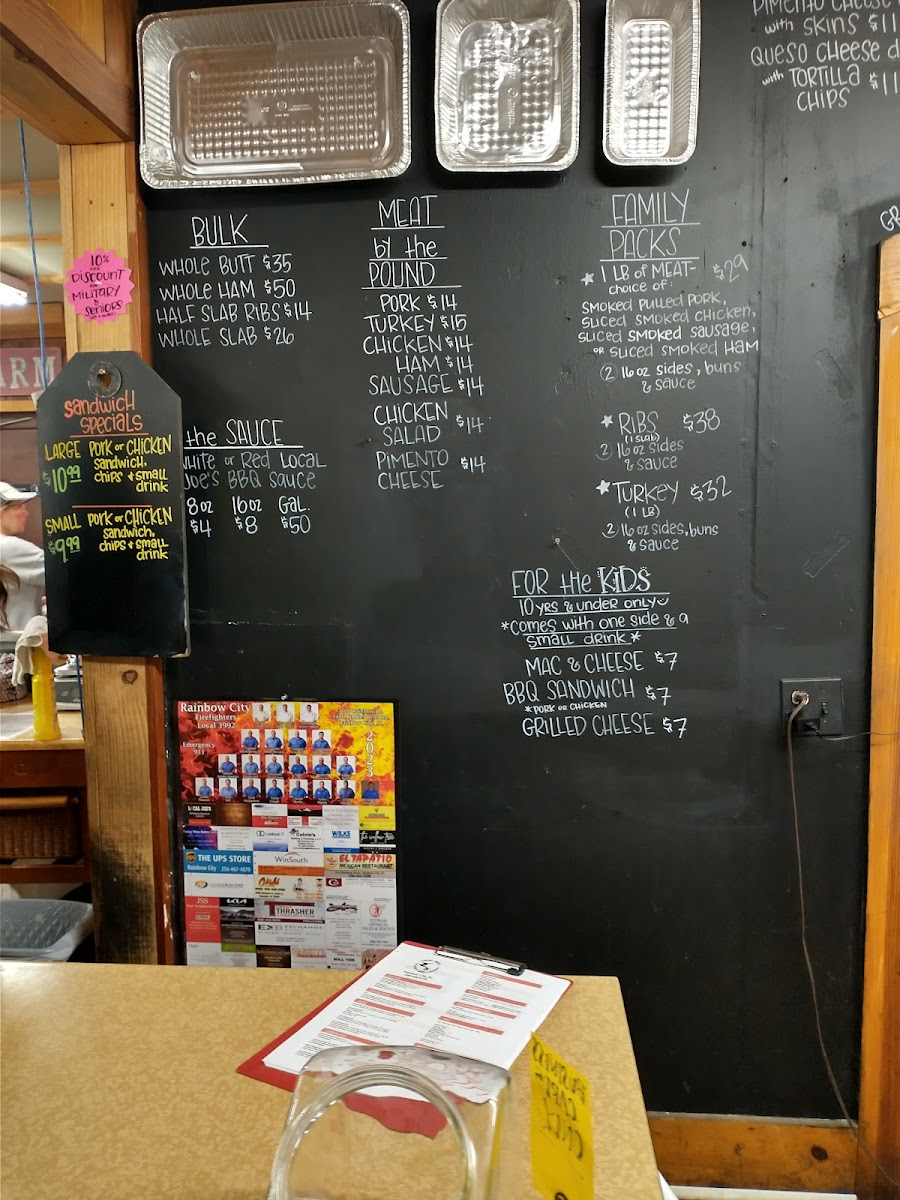 PIMENTO CHEESE
with SKINS $11
QUESO CHEESE
with TORTILLA $11
CHIPS
BULK
WHOLE BUTT $35
WHOLE HAM $50
HALF SLAB RIBS $14
WHOLE SLAB $26
MEAT
by the
POUND
PORK $14
TURKEY $15
CHICKEN $14
HAM $14
SAUSAGE $14
CHICKEN
SALAD $14
PIMENTO
CHEESE $14
FAMILY
PACKS
1 LB of MEAT- $29
choice of:
SMOKED PULLED PORK,
SLICED SMOKED CHICKEN,
SLICED SMOKED SAUSAGE,
OR SLICED SMOKED HAM
2 16 oz sides, buns
& sauce
RIBS $38
(1 SLAB)
2 16 oz sides
& sauce
TURKEY $32
(1 LB)
2 16 oz sides, buns
& sauce
the SAUCE
White or Red Local
Joe's BBQ Sauce
8 oz 16 oz Gal.
$4 $8 $50
FOR the KIDS
10 yrs & under only
*Comes with one side & a
small drink*
MAC & CHEESE $7
BBQ SANDWICH $7
*PORK OR CHICKEN
GRILLED CHEESE $7
10%
DISCOUNT
MILITARY &
SENIORS
ARM
Sandwich
Specials
LARGE Pork or CHICKEN
$10.99 sandwich,
chips & small
drink
SMALL Pork or CHICKEN
$9.99 sandwich,
chips & small
drink
Rainbow City
Firefighters
Local 3992
Emergency
911
2023
THE UPS STORE
Rainbow City 256-467-4878
WinSouth
EL TAPATIO
MEXICAN RESTAURANT
WILKS
THRASHER
JSS
KIA